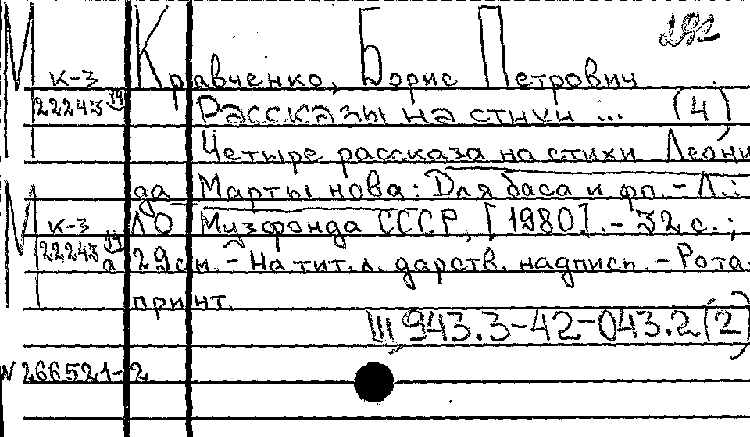 Кравченко, Борис Петрович
М к-3
22243
Рассказы на стихи ... (4)
Четыре рассказа на стихи Леони
да Мартынова: Для баса и фп. - Л.:
М к-3
ЛО Музфонда СССР, [1980]. - 32 с.;
22243
29 см. - На тит. л. дарств. надписи. - Рота-
принт.
III 943.3-42-043.2(2)
N 266521-2